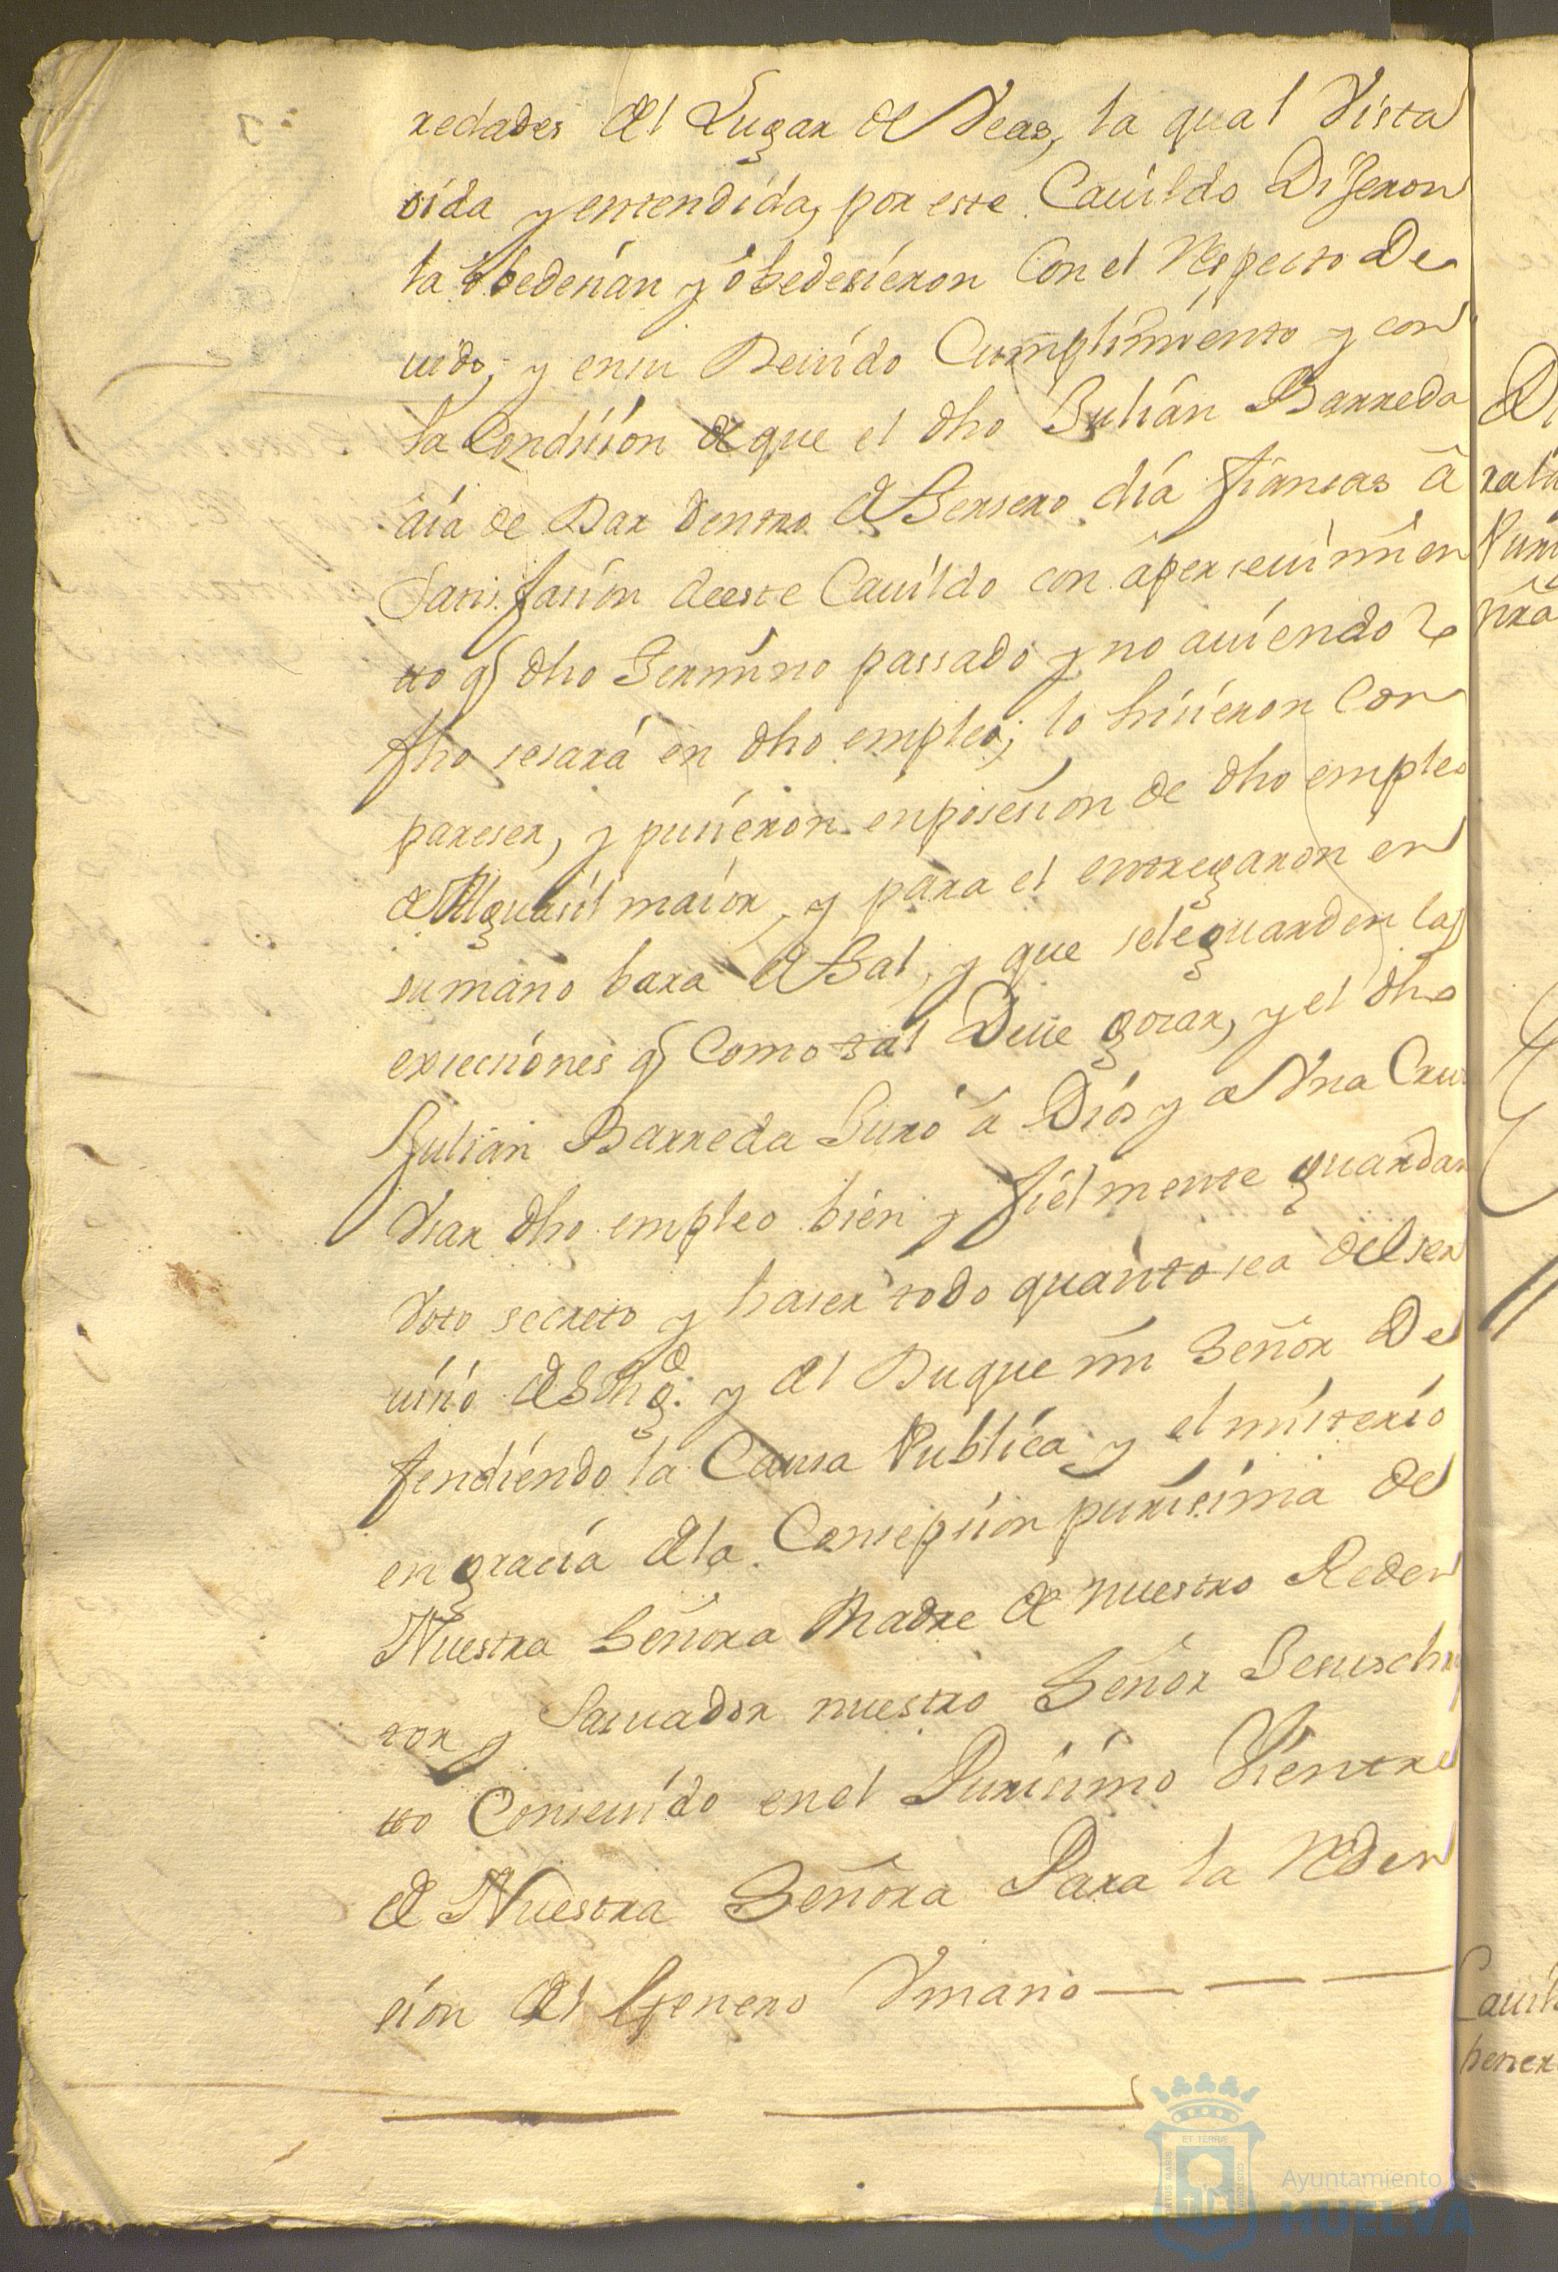 redades del Lugar de Veas, la qual Vista
oida y entendida, por este Cavildo Dijeron
la obedecian y obedesieron Con el Respecto De
uido; y en su Deuido Cumplimiento y con
la Condicion de que el dho Julian Barreda
aia de Dar dentro de terzero dia fianzas â
Satisfacion de este Cauildo con apercevimien
tto q dho termino passado y no auiendo lo
fho sesará en dho empleo; lo hicieron Com
pareser, y pusieron en posesion de dho empleo
de Alguasil maior, y para el entregaron en
su mano bara de tal, y que se le guarden las
execciones q Como tal Deue gozar, y el dho
Julian Barreda Juró â Dios y a Vna Cruz
Vsar dho empleo bien y fielmente guardar
Voto secreto y haser todo quanto sea del ser
uicio de S Mgd. y del Duque mi Señor De
fendiendo la Causa Publica y el misterio
en gracia de la Consepsion purisima de
Nuestra Señora Madre de nuestro Reden
tor y Saluador nuestro Señor Jesuchris
tto Conseuido en el Purisimo Vientre
de Nuestra Señora Para la Reden
cion del Genero Vmano
Cauil
hener
ET TERRÆ
Ayuntamiento de
HUELVA